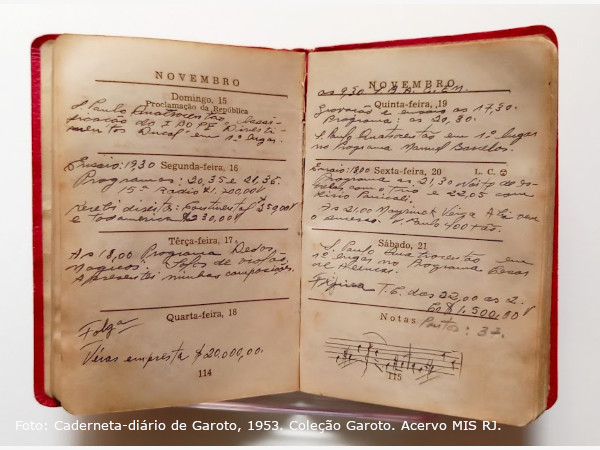 NOVEMBRO
Domingo, 15
Proclamação da República
S. Paulo Quatrocentão, classi-
ficação do IBOPE Diverti-
mentos Ducal em 1º lugar.
Segunda-feira, 16
Programas: 20,35 e 21,35.
15ª Radio $1.200,00
Recebi direito:
e Todamerica $230,00
Têrça-feira, 17
As 18,00 Programa Dedos
Magicos: Solos de violão.
Apresentei minhas composições.
Quarta-feira, 18
Folga
Véras empresta $20.000,00.
114
NOVEMBRO
as 9,30
Quinta-feira, 19
Gravação e ensaio as 17,30.
Programa: as 20,30.
S. Paulo Quatrocentão em 1º lugar
no Programa Manuel Barcelos.
Ensaio: 1800 Sexta-feira, 20 L. C.
Programa as 21,30 Noite de
com o Trio e 22,05
Lirio Panicali.
As 21,00 Mayrink Veiga A Lira
o sucesso. S. Paulo 400tão.
Sábado, 21
S. Paulo Quatrocentão em
1º lugar no Programa Cesar
de Alencar.
T.C. das 22,00 as 2.
$1.500,00
Notas Pontos: 37.
115
Foto: Caderneta-diário de Garoto, 1953. Coleção Garoto. Acervo MIS RJ.